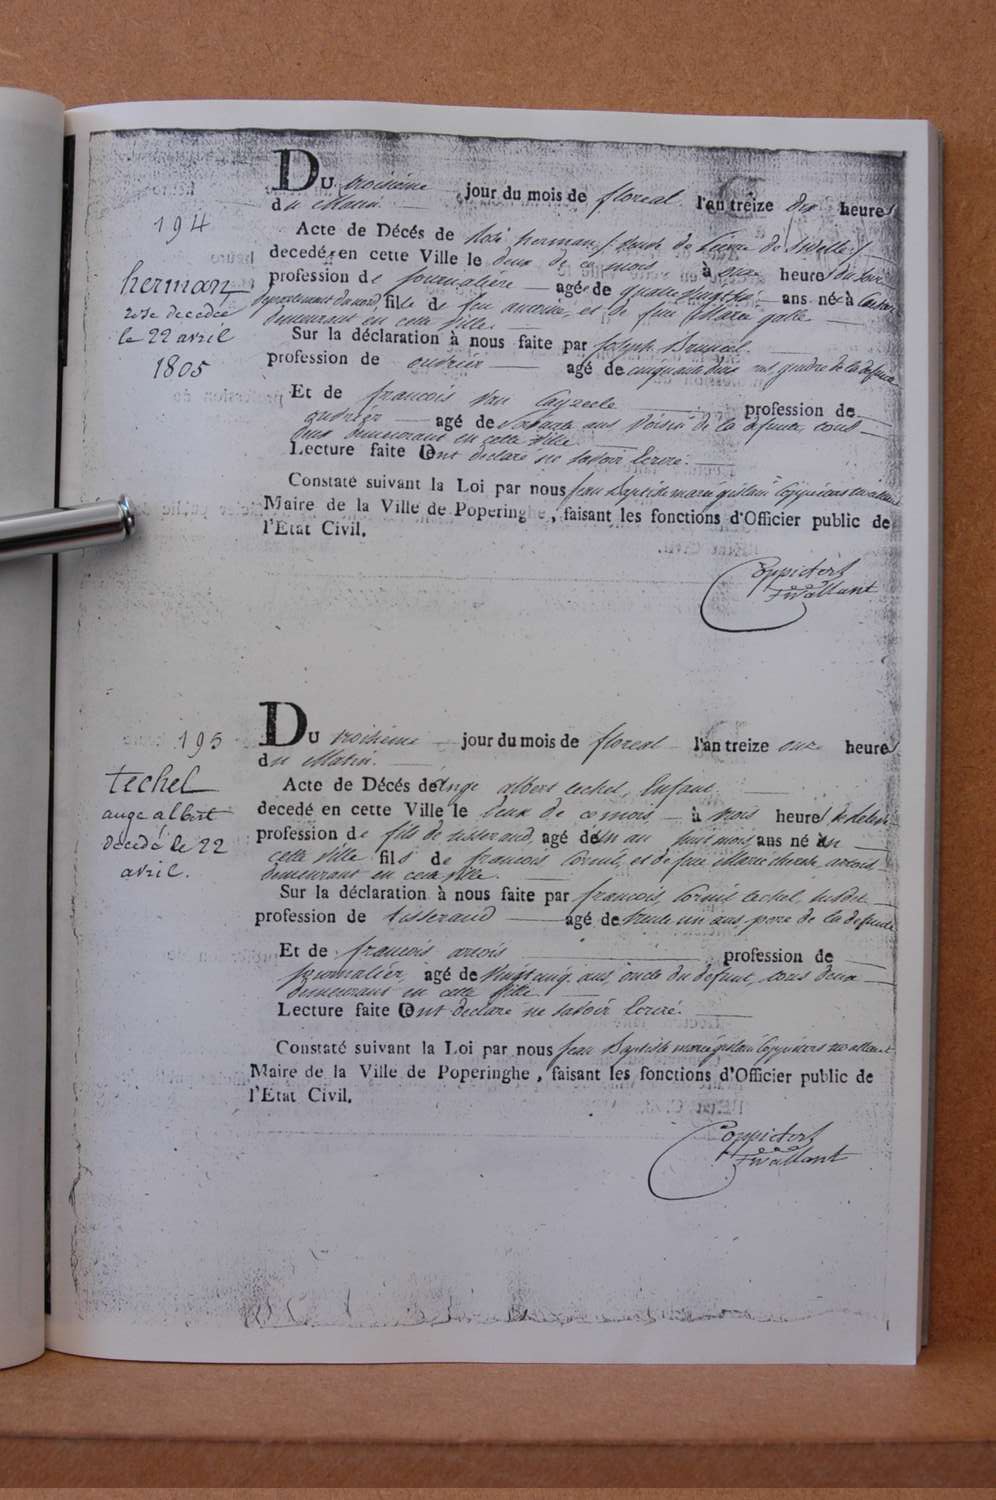 194
herman
rose decedée
le 22 avril
1805
Du troisième jour du mois de floreal l'an treize dix heures
du Matin.
Acte de Décés de Rose herman
decedé en cette Ville le deux de ce mois à onze heures du soir
profession de journalière agée de ans née à
departement du nord, fille de feu et de feu Marie
demeurant en cette Ville.
Sur la déclaration à nous faite par Joseph Bruneel
profession de ouvrier agé de cinquante trois ans, gendre de la defunte
Et de francois Van Cayzeele profession de
ouvrier agé de soixante ans voisin de la defunte, tous
deux demeurant en cette Ville.
Lecture faite Ont declaré ne savoir Ecrire.
Constaté suivant la Loi par nous Jean Baptiste marie gislain Coppieters twallant
Maire de la Ville de Poperinghe, faisant les fonctions d'Officier public de
l'Etat Civil.
Coppieters
twallant
195
techel
ange albert
decedé le 22
avril.
Du troisième jour du mois de floreal l'an treize onze heures
du Matin.
Acte de Décés de Ange albert techel, Enfant
decedé en cette Ville le deux de ce mois à trois heures de relevée
profession de fils de tisserand, agé de un an huit mois, ans né en
cette Ville fils de francois Cornil, et de feue Marie therese
demeurant en cette ville.
Sur la déclaration à nous faite par francois Cornil techel, susdit
profession de tisserand agé de trente un ans, pere de la defunte
Et de francois profession de
journalier, agé de vingt cinq ans, oncle du defunt, tous deux
demeurant en cette Ville.
Lecture faite Ont declaré ne savoir Ecrire.
Constaté suivant la Loi par nous Jean Baptiste marie gislain Coppieters twallant
Maire de la Ville de Poperinghe, faisant les fonctions d'Officier public de
l'Etat Civil.
Coppieters
twallant